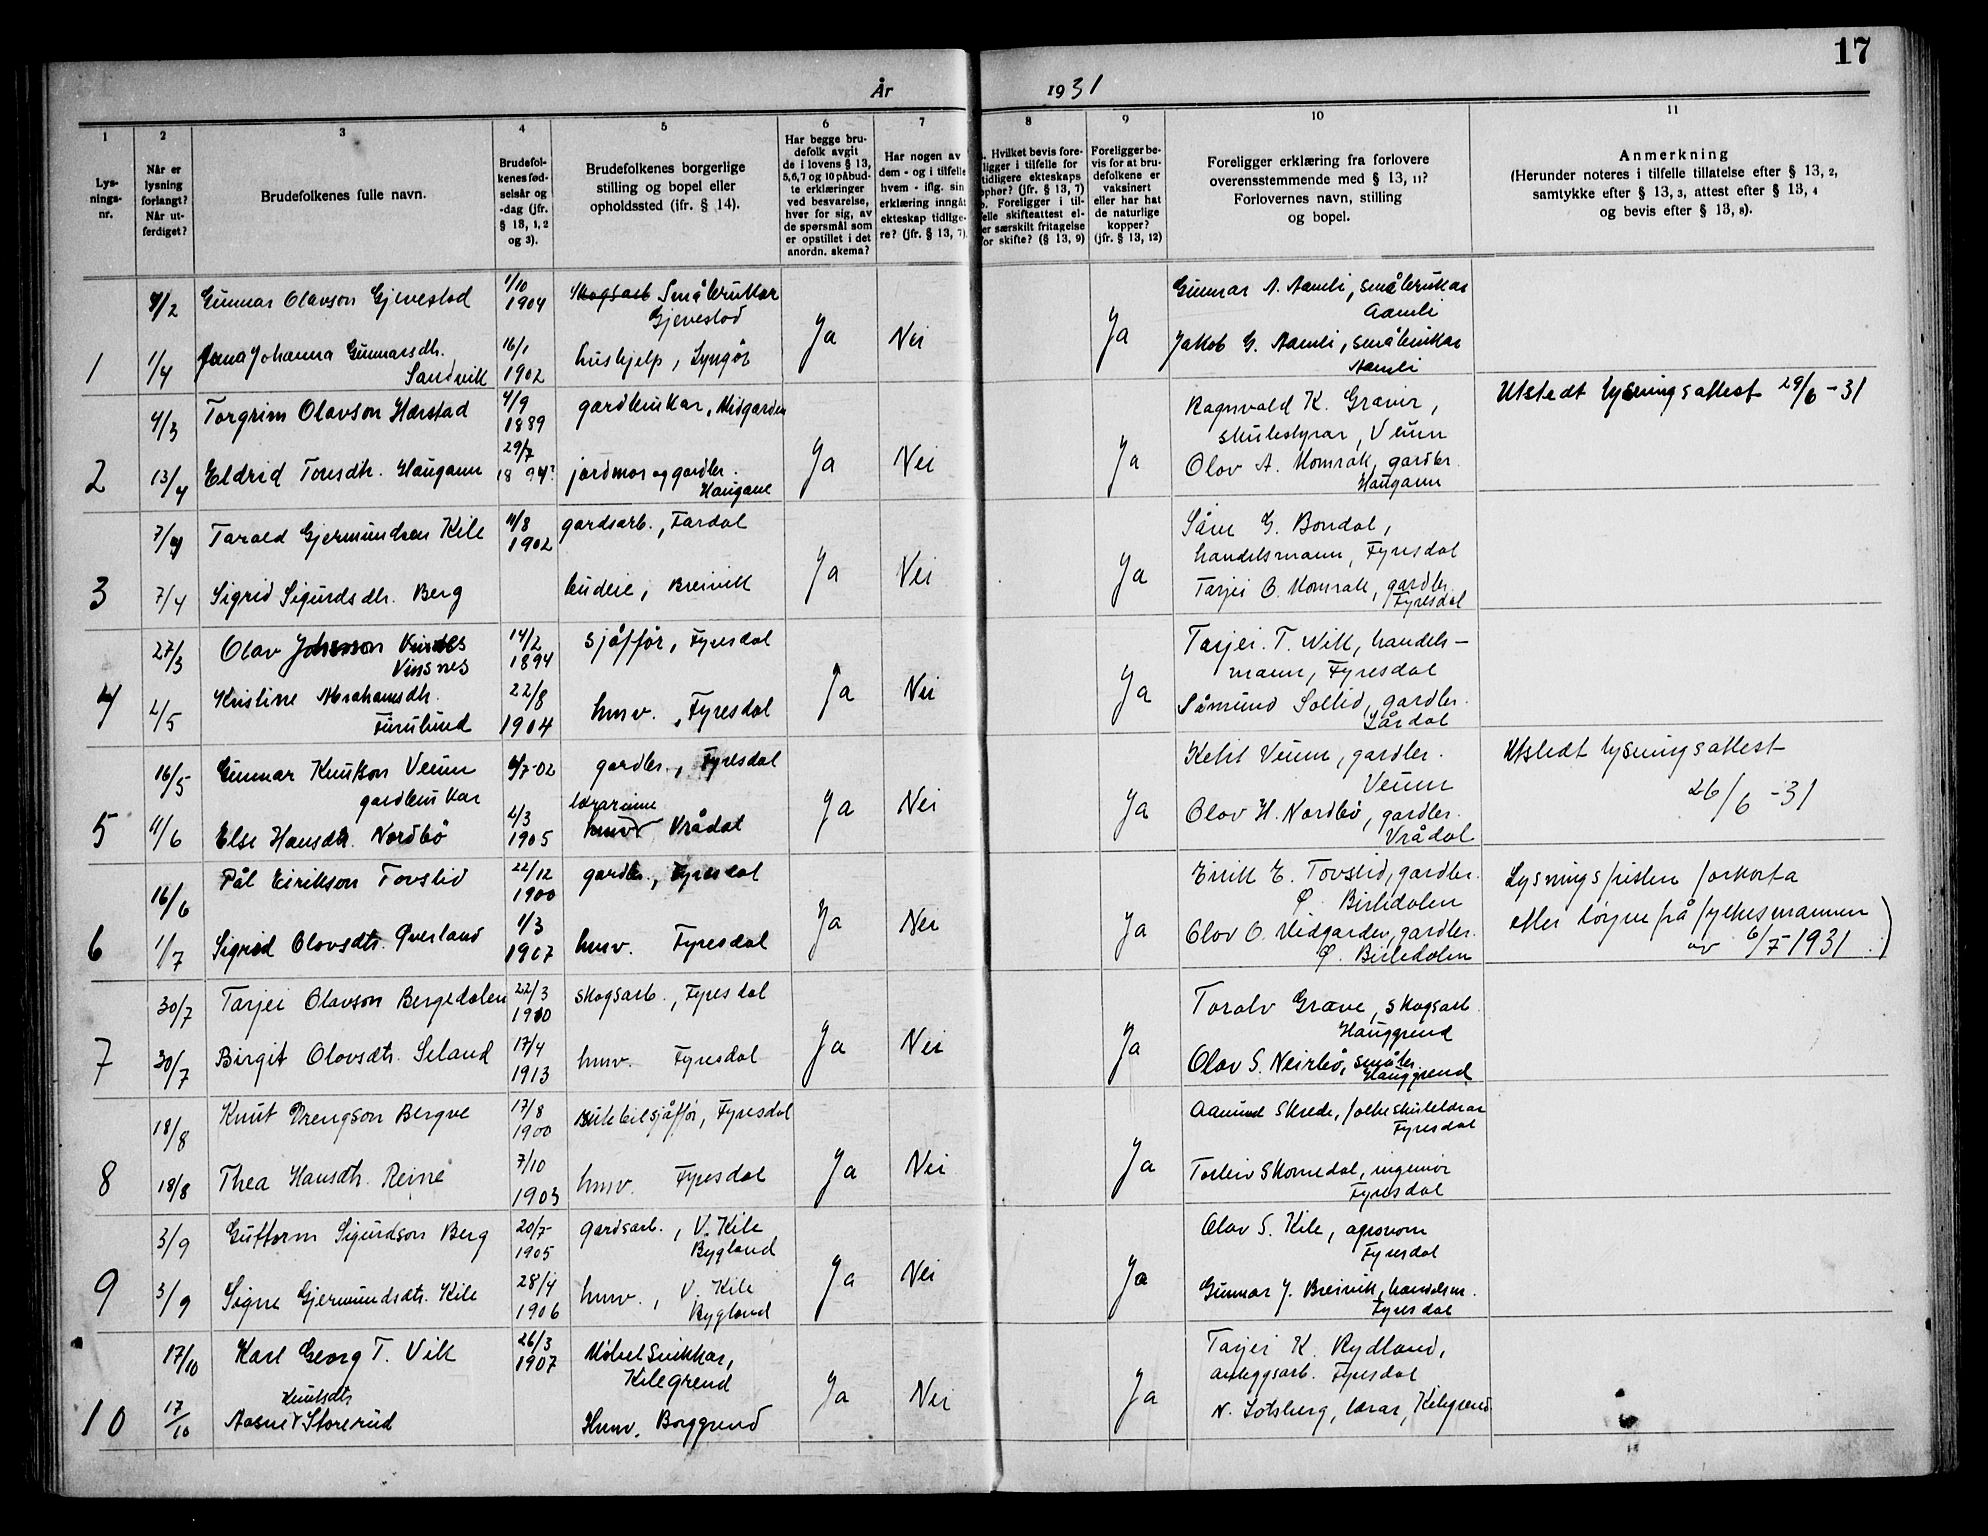 17
År 1931
1
2
3
4
5
6
7
8
9
10
11
Lys-
nings-
nr.
Når er
lysning
forlangt?
Når ut-
ferdiget?
Brudefolkenes fulle navn.
Brudefol-
kenes fød-
selsår og
-dag (jfr.
§ 13, 1, 2
og 3).
Brudefolkenes borgerlige
stilling og bopel eller
opholdssted (jfr. § 14).
Har begge bru-
defolk avgit
de i lovens § 13,
5,6,7 og 10 påbud-
te erklæringer
ved besvarelse,
hver for sig, av
de spørsmål som
er opstillet i det
anordn. skema?
Har nogen av
dem - og i tilfelle
hvem - iflg. sin
erklæring inngåt
ekteskap tidlige-
re? (jfr. § 13, 7)
. Hvilket bevis fore-
ligger i tilfelle for
tidligere ekteskaps
ophør? (jfr. § 13, 7)
b. Foreligger i til-
felle skifteattest el-
er særskilt fritagelse
for skifte? (§ 13, 9)
Foreligger be-
vis for at bru-
defolkene er
vaksinert
eller har hat
de naturlige
kopper?
(jfr. § 13, 12)
Foreligger erklæring fra forlovere
overensstemmende med § 13, 11?
Forlovernes navn, stilling
og bopel.
Anmerkning
(Herunder noteres i tilfelle tillatelse efter § 13, 2,
samtykke efter § 13, 3, attest efter § 13, 4
og bevis efter § 13, 8).
Gunnar Olavson Gjevestad 1/10 1904 Småbrukar
Gjevestad
Gunnar A. Aamli, småbrukar
Aamli
1 1/4 Johanna Gunnarsdtr. 16/1 1902 hushjelp, Lyngør Ja Nei Ja
Sandvik
Jakob G. Aamli, småbrukar
Aamli
4/3 Torgrim Olavson Harstad 4/9 1889 gardbrukar, Midgarden
Ragnvald K. Gravir,
skulestyrar, Veum
Utstedt lysningsattest 29/6-31
2 13/4 Eldrid Toresdtr. Haugann 29/7 1894? jordmor og gardbr. Ja Nei Ja
Haugane
Olav A. Momrak, gardbr.
Haugann
7/4 Tarald Gjermundsen Kile 1902 gardsarb., Fardal
G. Bondal,
handelsmann, Fyresdal
3 7/4 Sigrid Sigurdsdtr. Berg budeie, Breivik Ja Nei Ja
Tarjei O. Momrak, gardbr.
Fyresdal
27/3 Olav Johnson 14/2 1894 sjåffør, Fyresdal
Vinsnes
Tarjei T. Vik, handels-
mann, Fyresdal
4 2/5 Kristine Abrahamsdtr. 22/8 1904 hmv., Fyresdal Ja Nei Ja
Furulund
Såmund Sollid, gardbr.
Lårdal
16/5 Gunnar Knutson Veum gardbr., Fyresdal
gardbrukar
Ketil Veum, gardbr.
Veum
Utstedt lysningsattest
26/6-31
5 11/6 Else Hansdtr. Nordbø 2/3 1905 lærarinne Vrådal Ja Nei Ja
Olav H. Nordbø, gardbr.
Vrådal
16/6 Pål Eirikson Tovslid 22/12 1900 gardbr., Fyresdal
Eirik E. Tovslid, gardbr.
Ø. Birtedalen
Lysningsfristen forkorta
etter løyve frå fylkesmannen
av 6/7-1931.)
6 1/7 Sigrid Olavsdtr. Øverland 1/3 1907 hmv. Fyresdal Ja Nei Ja
Olav O. Midgarden, gardbr.
Ø. Birtedalen
30/7 Tarjei Olavson Bergedalen 22/3 1910 skogsarb., Fyresdal
Toralv Grave, skogsarb
Hauggrend
7 30/7 Birgit Olavsdtr. Seland 17/4 1913 hmv. Fyresdal Ja Nei Ja
Olav S. Neirbø, småbr.
Hauggrend
18/8 Knut Drengson Bergve 17/8 1900 Rutebilsjåffør, Fyresdal
Aamund Skrede, folkeskulelærar
Fyresdal
8 18/8 Thea Hansdtr. Reine 7/10 1903 hmv. Fyresdal Ja Nei Ja
Torleiv Skomedal, ingeniør
Fyresdal
3/9 Guttorm Sigurdson Berg 20/7 1905 gardsarb., V. Kile
Bygland
Olav S. Kile, agronom
Fyresdal
9 3/9 Signe Gjermundsdtr. Kile 28/4 1906 hmv., V. Kile Ja Nei Ja
Bygland
Gunnar J. Breivik, handelsm.
Fyresdal
17/10 Karl Georg T. Vik 26/3 1907 Møbelsnikkar,
Kilegrend
Tarjei K. Rydland,
anleggsarb. Fyresdal
Knutsdtr
10 17/10 Aasne Storerud Husv. Borggrend Ja Nei Ja
N. Lotsberg, lærar, Kilegrend